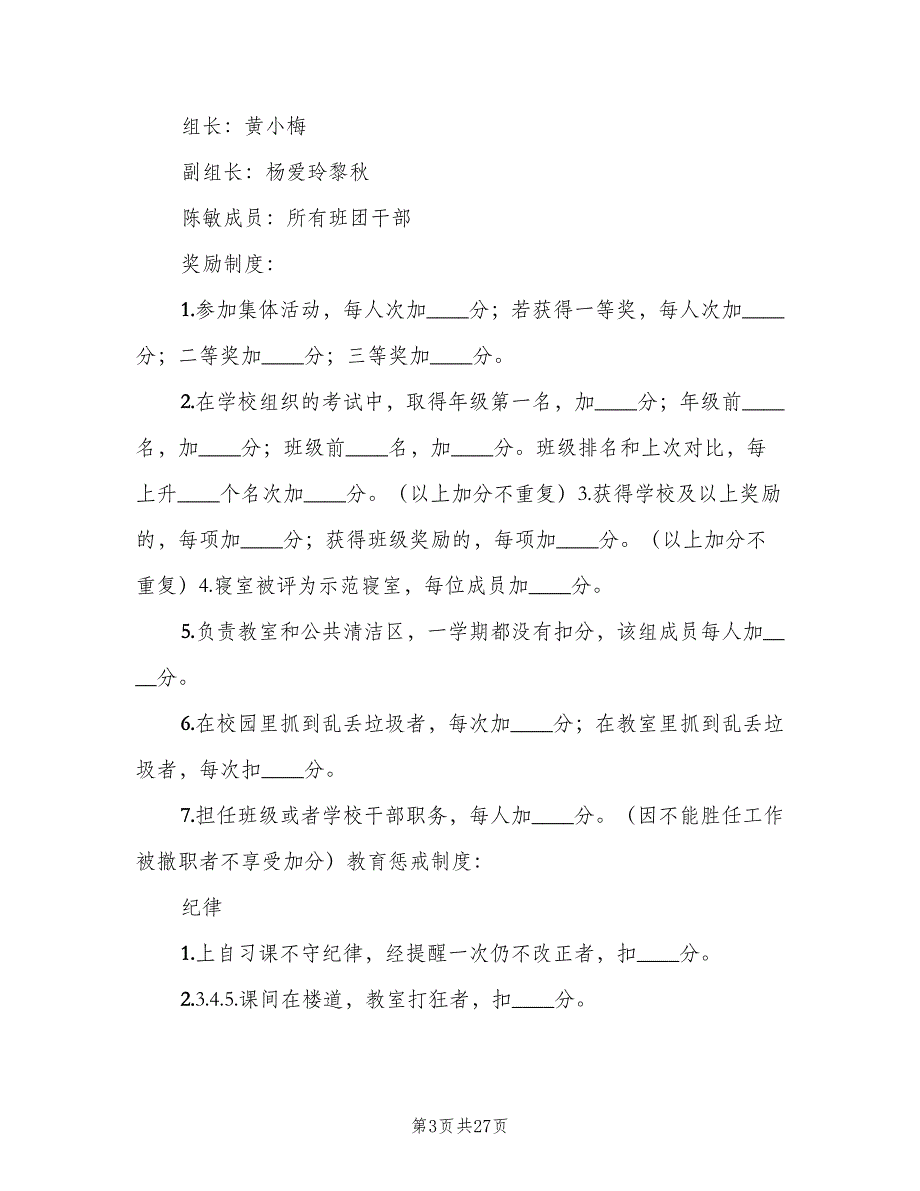 组长：黄小梅
副组长：杨爱玲黎秋
陈敏成员：所有班团干部
奖励制度：
1.参加集体活动，每人次加____分；若获得一等奖，每人次加____
分；二等奖加____分；三等奖加____分。
2.在学校组织的考试中，取得年级第一名，加____分；年级前____
名，加____分；班级前____名，加____分。班级排名和上次对比，每
上升____个名次加____分。（以上加分不重复）3.获得学校及以上奖励
的，每项加____分；获得班级奖励的，每项加____分。（以上加分不
重复）4.寝室被评为示范寝室，每位成员加____分。
5.负责教室和公共清洁区，一学期都没有扣分，该组成员每人加__
__分。
6.在校园里抓到乱丢垃圾者，每次加____分；在教室里抓到乱丢垃
圾者，每次扣____分。
7.担任班级或者学校干部职务，每人加____分。（因不能胜任工作
被撤职者不享受加分）教育惩戒制度：
纪律
1.上自习课不守纪律，经提醒一次仍不改正者，扣____分。
2.3.4.5.课间在楼道，教室打狂者，扣____分。
第3页共27页